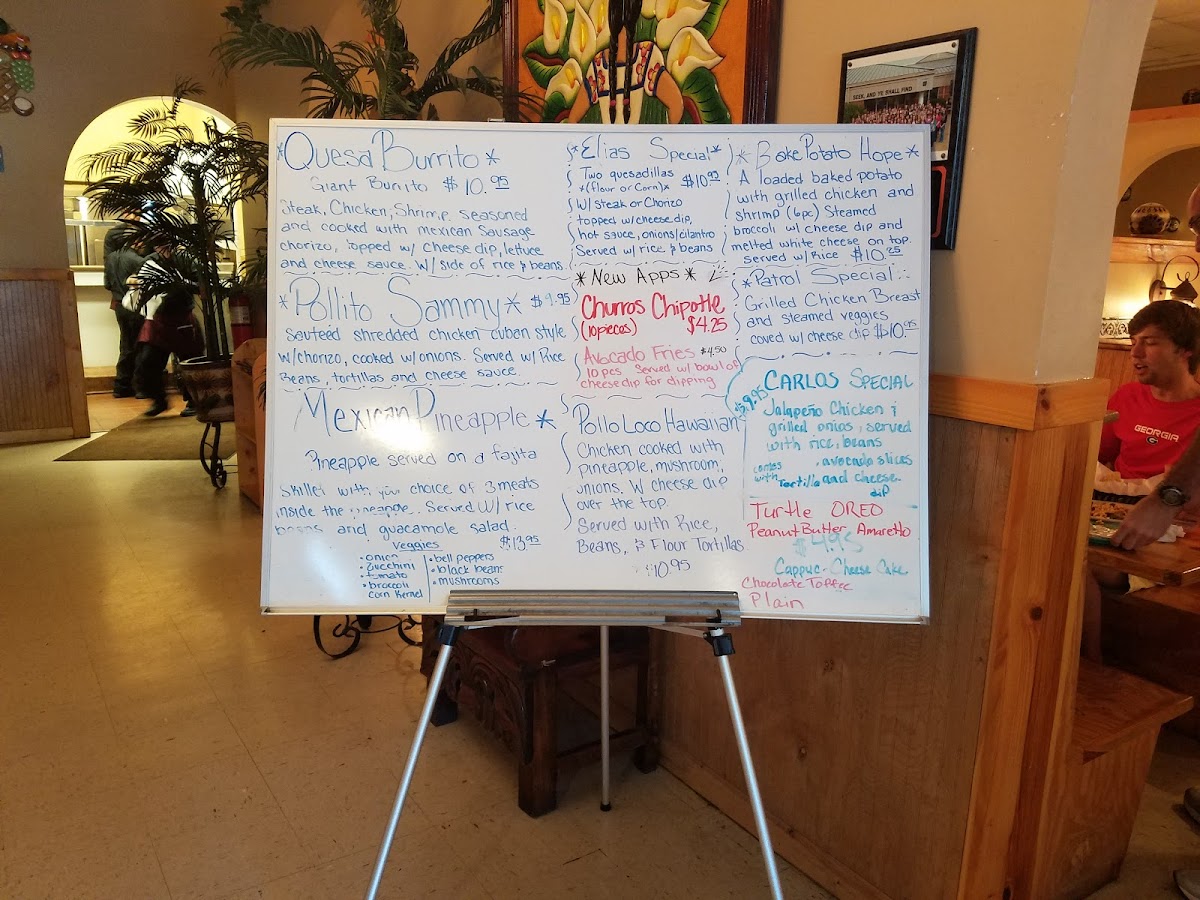 *Quesa Burrito*
Giant Burrito $10.95
Steak, Chicken, Shrimp, seasoned
and cooked with mexican Sausage
chorizo, topped w/ cheese dip, lettuce
and cheese sauce. W/ side of rice & beans.
*Pollito Sammy* $9.95
Sauteed shredded Chicken cuban style
w/chorizo, cooked w/onions. Served w/ Rice
Beans, tortillas and cheese sauce.
Mexican Pineapple *
Pineapple served on a fajita
skillet with your choice of 3 meats
inside the pineapple. Served W/ rice
beans and guacamole salad.
$13.95
Veggies
• onion
• zucchini
• tomato
• broccoli
corn Kernel
• bell peppers
• black beans
• mushrooms
*Elias Special*
Two quesadillas
*(flour or Corn)* $10.99
W/ Steak or Chorizo
topped w/cheese dip,
hot sauce, onions/cilantro
Served w/ rice & beans
*New Apps*
Churros Chipotle
(10 piecos) $4.25
Avocado Fries $4.50
10 pcs Served w/ bowl of
cheese dip for dipping
Pollo Loco Hawaiian
Chicken cooked with
pineapple, mushroom,
onions. W cheese dip
over the top.
Served with Rice,
Beans, & Flour Tortillas
$10.95
*Bake Potato Hope*
A loaded baked potato
with grilled chicken and
shrimp (6pc) Steamed
broccoli w/ cheese dip and
melted white cheese on top.
served w/Rice $10.25
*Patrol Special
Grilled Chicken Breast
and steamed veggies
coved w/cheese dip $10.95
Carlos Special
$9.95
Jalapeño Chicken &
grilled onios, served
with rice, beans
comes with Tortilla, avocado slices
and cheese dip
Turtle OREO
Peanut Butter Amaretto
$4.95
Cappuc-Cheese Cake
Chocolate Toffee
Plain
SEEK, AND YE SHALL FIND
GEORGIA
G